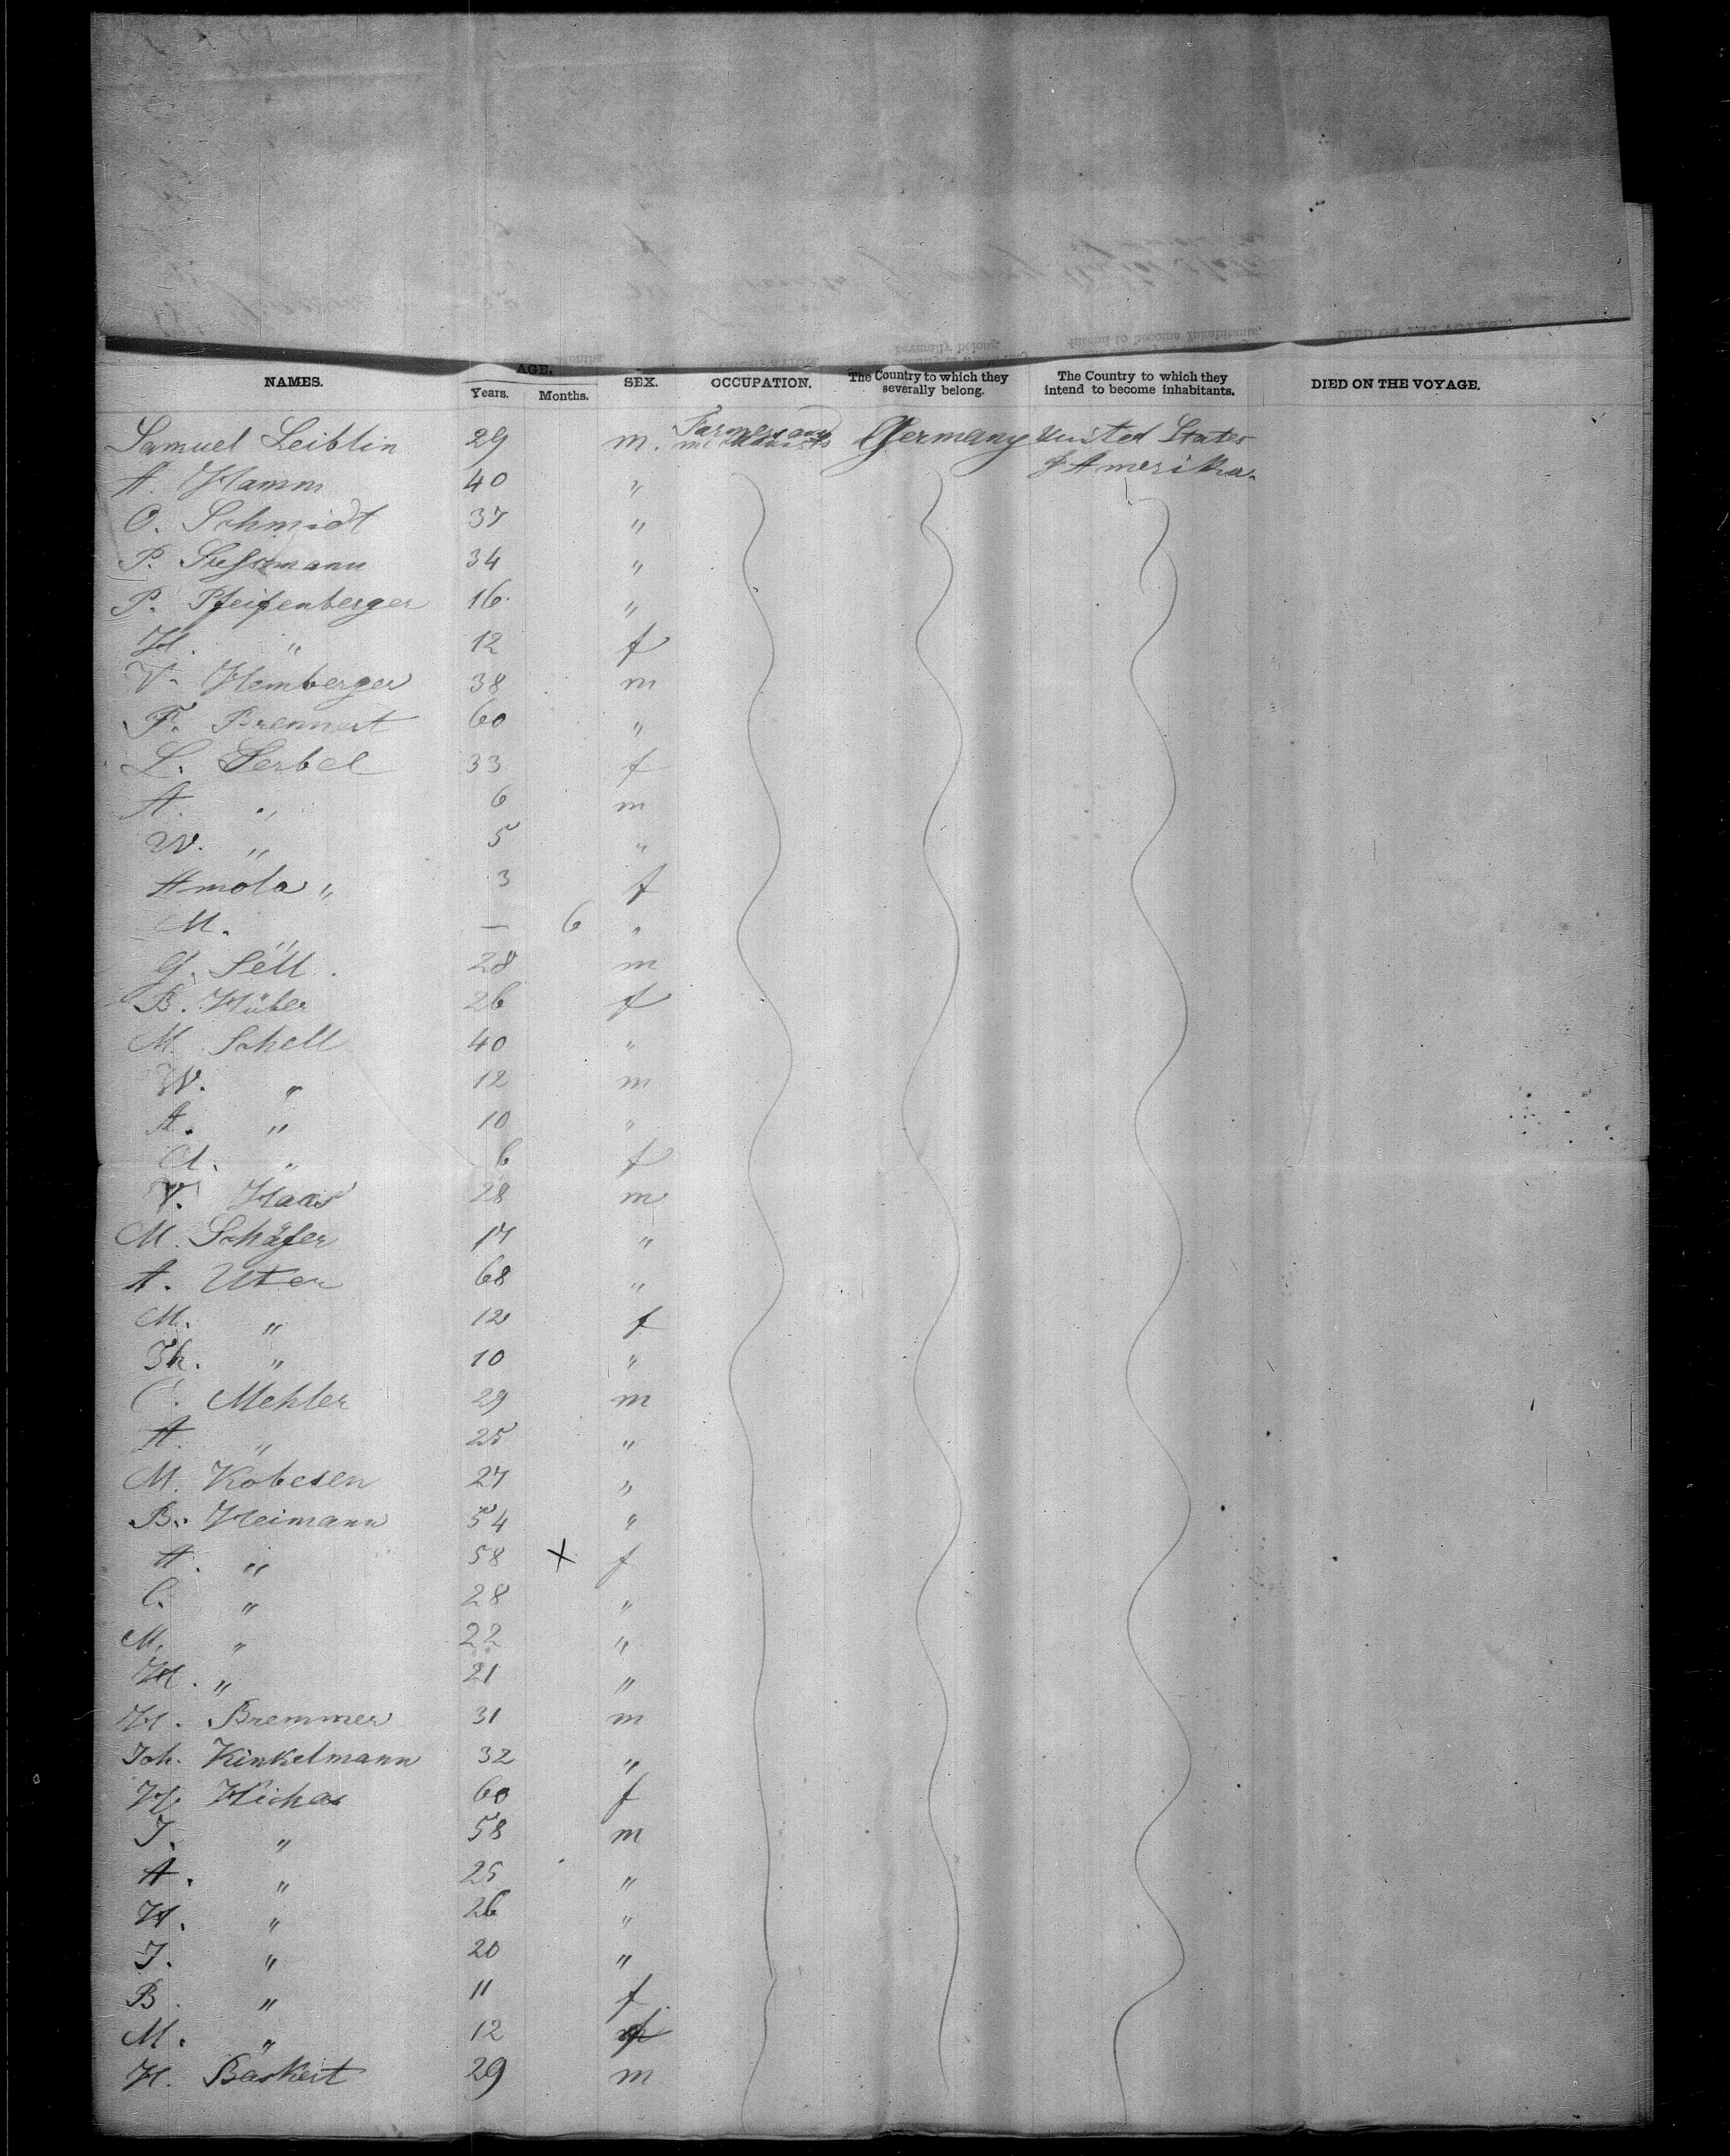 NAMES. AGE. SEX. OCCUPATION. The Country to which they severally belong. The Country to which they intend to become inhabitants. DIED ON THE VOYAGE.
Years. Months.
Samuel Leiblin 29 m. Farmers and mechanists Germany United States
of Amerika.
A. Hamm 40 "
O. Schmidt 37 "
P. 34 "
P. Pfeifenberger 16 "
H. " 12 f
V. Hemberger 38 m
F. Brennert 60 "
L. Serbel 33 f
A. " 6 m
W. " 5 "
Amola " 3 f
M. " — 6 "
G. Sell 28 m
B. Hüber 26 f
M. Schell 40 "
W. " 12 m
A. " 10 "
Cl. " 6 f
V. Haas 28 m
M. Schäfer 17 "
A. Uter 68 "
M. " 12 f
Th. " 10 "
C. Mehler 29 m
A. " 25 "
M. Kobesen 27 "
B. Heimann 54 "
A. " 58 X f
C. " 28 "
M. " 22 "
H. " 21 "
H. Bremmer 31 m
Joh. Kinkelmann 32 "
H. Hichas 60 f
J. " 58 m
A. " 25 "
H. " 26 "
J. " 20 "
B. " 11 f
M. " 12 f
H. Baskert 29 m